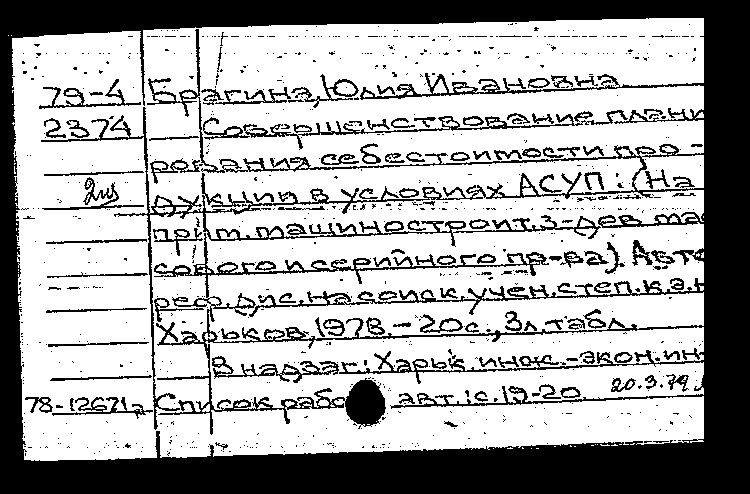 79-4 Брагина, Юлия Ивановна
2374 Совершенствование плани
рования себестоимости про-
2из дукции в условиях АСУП: (На
прим. машиностроит. з-дов мас
сового и серийного пр-ва). Авто
реф. дис. на соиск. учен. степ. к.э.н
Харьков, 1978. - 20 с., 3 л. табл.
В надзаг: Харьк. инж.-экон. ин-
78-12671а Список рабо авт.: с. 19-20 20.3.79